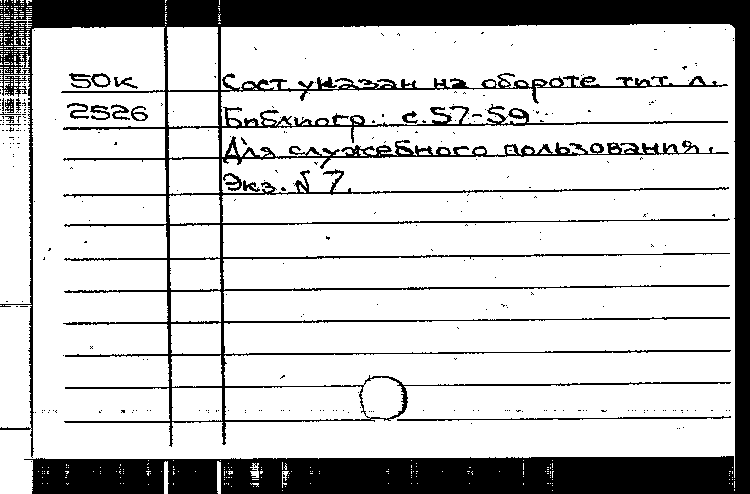 50к Сост указан на обороте тит. л.
2526 Библиогр.: с.57-59.
Для служебного пользования.
Экз. N 7.